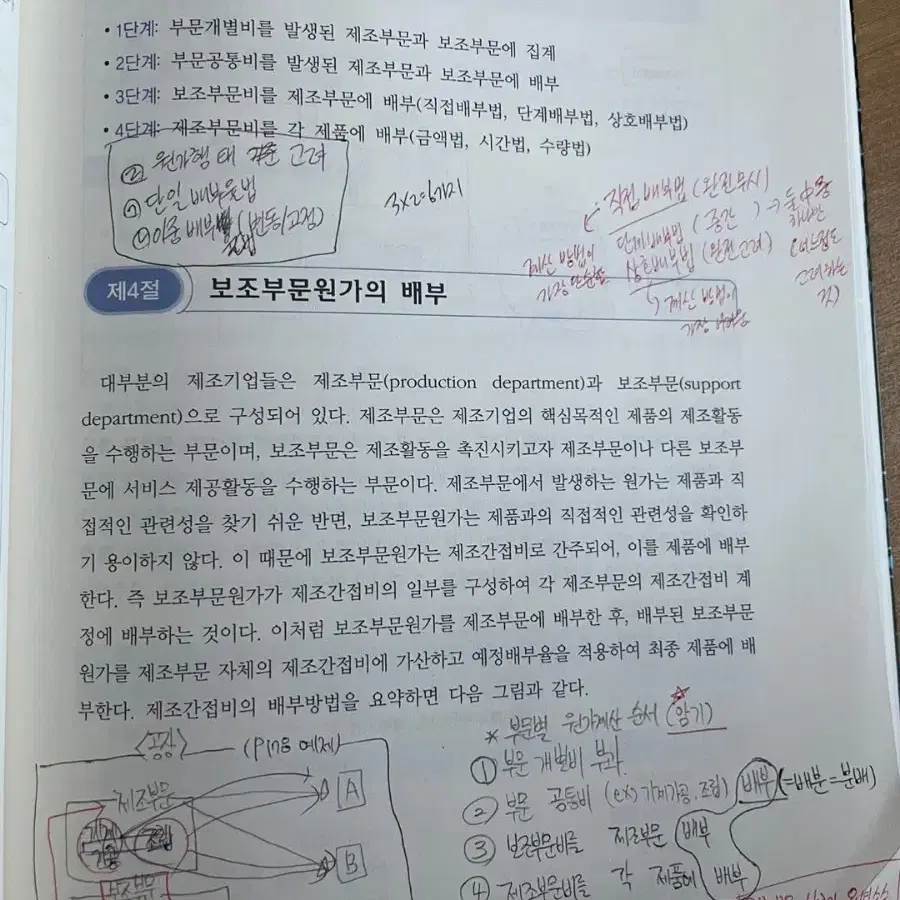 • 1단계: 부문개별비를 발생된 제조부문과 보조부문에 집계
• 2단계: 부문공통비를 발생된 제조부문과 보조부문에 배부
• 3단계: 보조부문비를 제조부문에 배부(직접배부법, 단계배부법, 상호배부법)
• 4단계: 제조부문비를 각 제품에 배부(금액법, 시간법, 수량법)
원가행태 기준 고려
㉠ 단일 배부율법
㉡ 이중 배부 (변동/고정)
3x2=6가지
직접 배부법 (완전무시)
단계배부법 (중간) → 둘 中
상호배부법 (완전고려)
계산 방법이
가장 단순함
계산 방법이
가장 어려움
하나만
고려하는
것)
제4절 보조부문원가의 배부
대부분의 제조기업들은 제조부문(production department)과 보조부문(support
department)으로 구성되어 있다. 제조부문은 제조기업의 핵심목적인 제품의 제조활동
을 수행하는 부문이며, 보조부문은 제조활동을 촉진시키고자 제조부문이나 다른 보조부
문에 서비스 제공활동을 수행하는 부문이다. 제조부문에서 발생하는 원가는 제품과 직
접적인 관련성을 찾기 쉬운 반면, 보조부문원가는 제품과의 직접적인 관련성을 확인하
기 용이하지 않다. 이 때문에 보조부문원가는 제조간접비로 간주되어, 이를 제품에 배부
한다. 즉 보조부문원가가 제조간접비의 일부를 구성하여 각 제조부문의 제조간접비 계
정에 배부하는 것이다. 이처럼 보조부문원가를 제조부문에 배부한 후, 배부된 보조부문
원가를 제조부문 자체의 제조간접비에 가산하고 예정배부율을 적용하여 최종 제품에 배
부한다. 제조간접비의 배부방법을 요약하면 다음 그림과 같다.
* 부문별 원가계산 순서 (암기)
① 부문 개별비 부과
② 부문 공통비 (ex) 기계가공, 조립) 배부 (=배분=분배)
③ 보조부문비를 제조부문 배부
④ 제조부문비를 각 제품에 배부
<공장>
(P178 예제)
제조부문
기계
가공
조립
A
B
보조부문